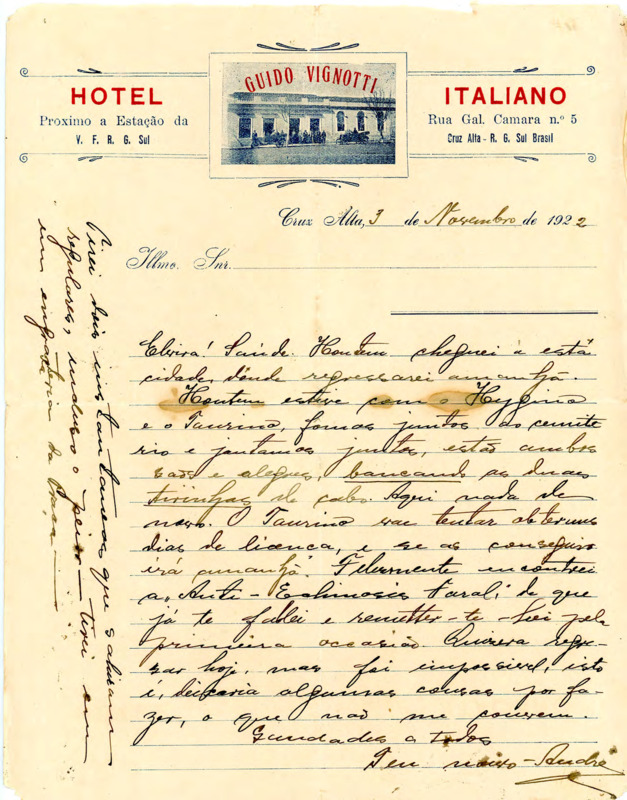 GUIDO VIGNOTTI
HOTEL
ITALIANO
Proximo a Estação da
V. F. R. G. Sul
Rua Gal. Camara n.º 5
Cruz Alta - R. G. Sul Brasil
Cruz Alta, 3 de Novembro de 1922
Illmo. Snr.
Elvira! Saúde. Hontem cheguei á está
cidade, d'onde regressarei amanhã.
Hontem estive com o Hygino
e o Taurino, fomos juntos ao cemite
rio e jantamos juntos, estão ambos
sãos e alegres, bancando as duas
de cabo. Aqui nada de
novo. O Taurino vae tentar obter uns
dias de licença, e se as conseguir
irá amanhã. Felizmente encontrei
a "Anti - de que
já te falei e remetter-te-hei pela
primeira occasião. Quizera regres
sar hoje, mas foi impossivel, isto
é, deixaria algumas cousas por fa-
zer, o que não me convem.
Saudades a todos
Teu noivo - André
Tirei dois instantaneos que sahiram
regulares, inclusive o - tirei em
uma engraxateria da Praça